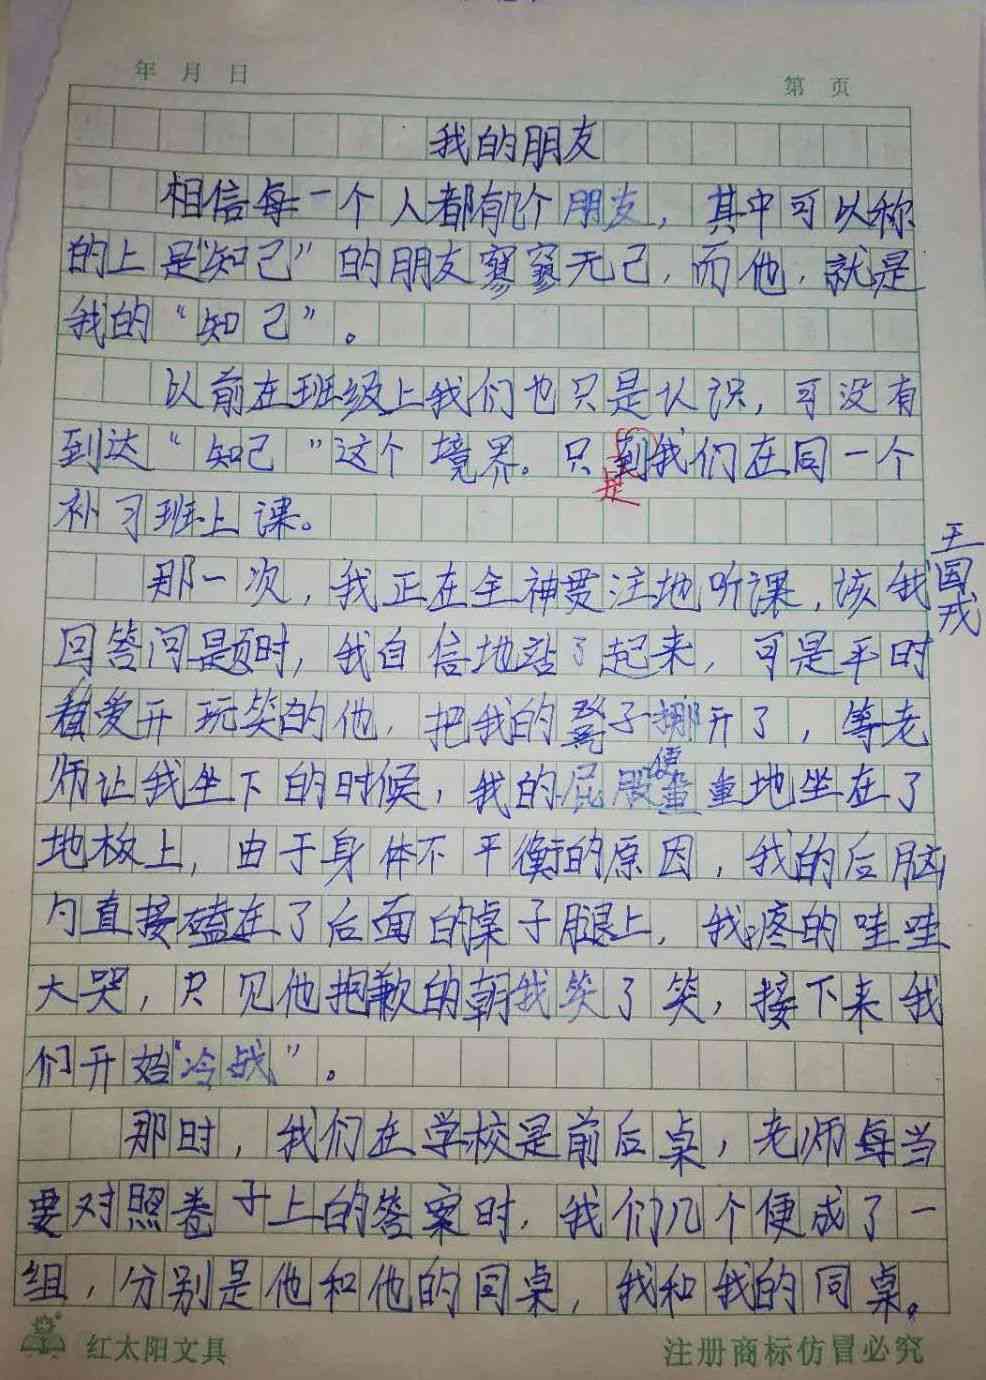 年 月 日
第 页
我的朋友
相信每一个人都有几个朋友，其中可以称
的上是“知己”的朋友寥寥无己，而他，就是
我的“知己”。
以前在班级上我们也只是认识，可没有
到达“知己”这个境界。只到我们在同一个
是
补习班上课。
那一次，我正在全神贯注地听课，该我
王国戎
回答问题时，我自信地站了起来，可是平时
爱开玩笑的他，把我的凳子挪开了，等老
师让我坐下的时候，我的屁股便重重地坐在了
地板上，由于身体不平衡的原因，我的后脑
勺直接磕在了后面的桌子腿上，我疼的哇哇
大哭，只见他抱歉的朝我笑了笑，接下来我
们开始“冷战”。
那时，我们在学校是前后桌，老师每当
要对照卷子上的答案时，我们几个便成了一
组，分别是他和他的同桌，我和我的同桌。
红太阳文具
注册商标仿冒必究